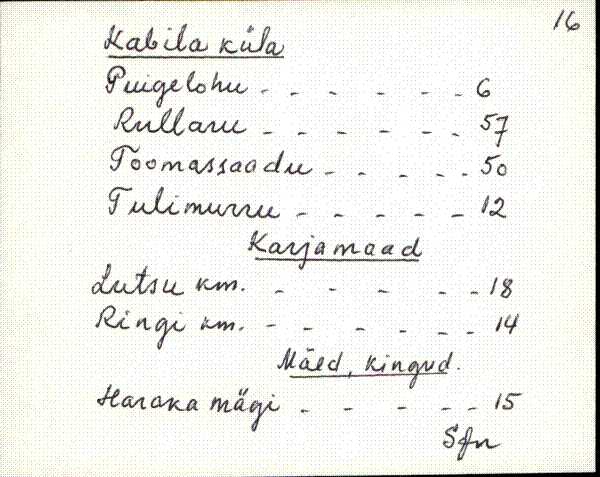 16
Kabila küla
Puigelohu - - - - - - 6
Rullaru - - - - - - 57
Toomassaadu - - - - - 50
Tulimurru - - - - - 12
Karjamaad
Lutsu km. - - - - - 18
Ringi km. - - - - - - 14
Mäed, kingud.
Haraka mägi - - - - - 15